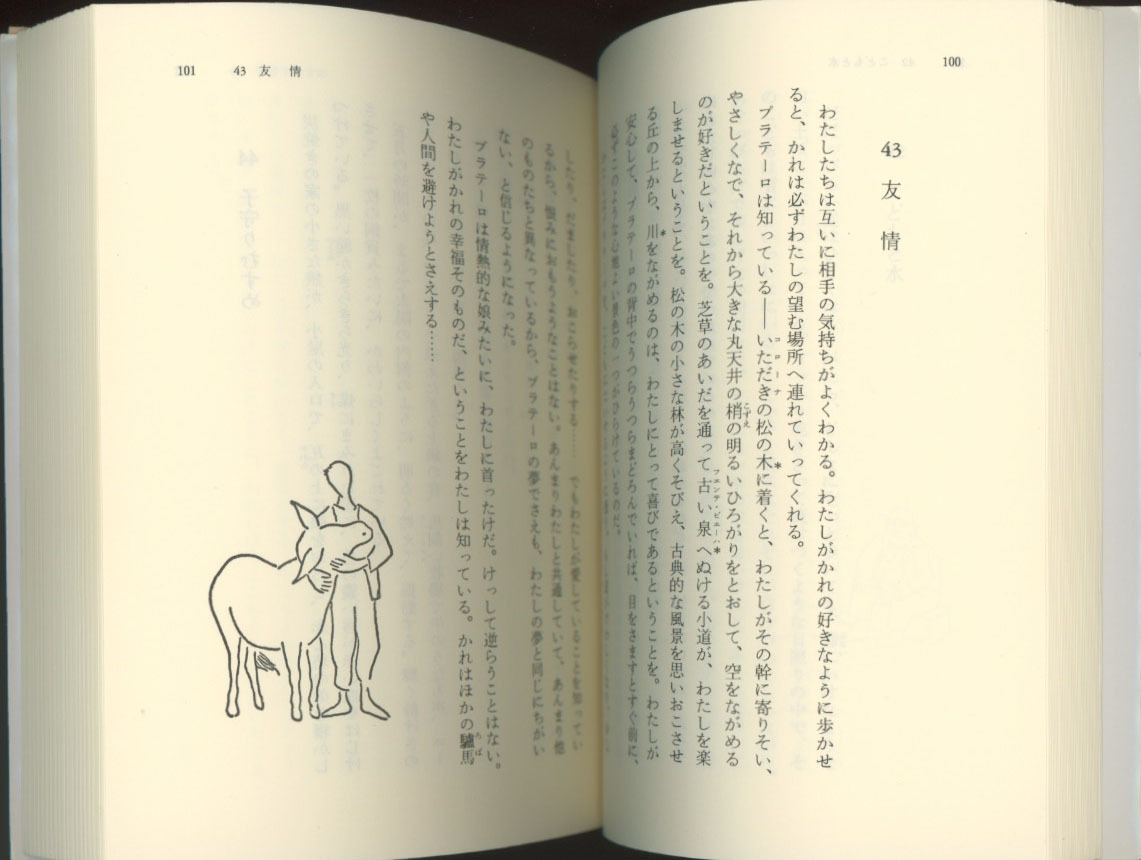 100
43 友情
わたしたちは互いに相手の気持ちがよくわかる。わたしがかれの好きなように歩かせ
ると、かれは必ずわたしの望む場所へ連れていってくれる。
プラテーロは知っている――いただきの松の木*に着くと、わたしがその幹に寄りそい、
コローナ
やさしくなで、それから大きな丸天井の梢の明るいひろがりをとおして、空をながめる
こずえ
のが好きだということを。芝草のあいだを通って古い泉*へぬける小道が、わたしを楽
フエンテ・ビエーハ
しませるということを。松の木の小さな林が高くそびえ、古典的な風景を思いおこさせ
る丘の上から、川*をながめるのは、わたしにとって喜びであるということを。わたしが
安心して、プラテーロの背中でうつらうつらまどろんでいれば、目をさますとすぐ前に、
必ずこのような心地よい景色の一つがひらけているのだ。
101 43 友情
したり、だましたり、おこらせたりする……でもわたしが愛していることを知ってい
るから、恨みにおもうようなことはない。あんまりわたしと共通していて、あんまり他
のものたちと異なっているから、プラテーロの夢でさえも、わたしの夢と同じにちがい
ない、と信じるようになった。
プラテーロは情熱的な娘みたいに、わたしに首ったけだ。けっして逆らうことはない。
わたしがかれの幸福そのものだ、ということをわたしは知っている。かれはほかの驢馬
ろば
や人間を避けようとさえする……